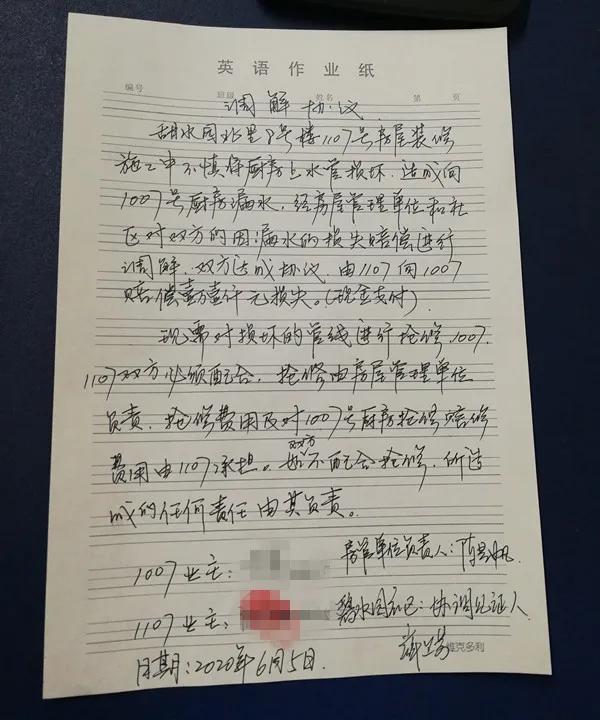 英语作业纸
编号 班级 姓名 第 页
调解协议
甜水园北里8号楼1107号房屋装修
施工中不慎将厨房上水管损坏.造成向
1007号厨房漏水.经房屋管理单位和社
区对双方的因漏水的损失赔偿进行
调解.双方达成协议.由1107向1007
赔偿壹万壹仟元损失。(现金支付)
现需对损坏的管线进行抢修.1007.
1107双方必须配合,抢修由房屋管理单位
负责.抢修费用及对1007号厨房抢修赔修
双方
费用由1107承担。如不配合抢修.所造
成的任何责任由其负责。
1007业主: 房管单位负责人:
1107业主: 水园社区:协调见证人
日期:2020年6月5日.
维克多利